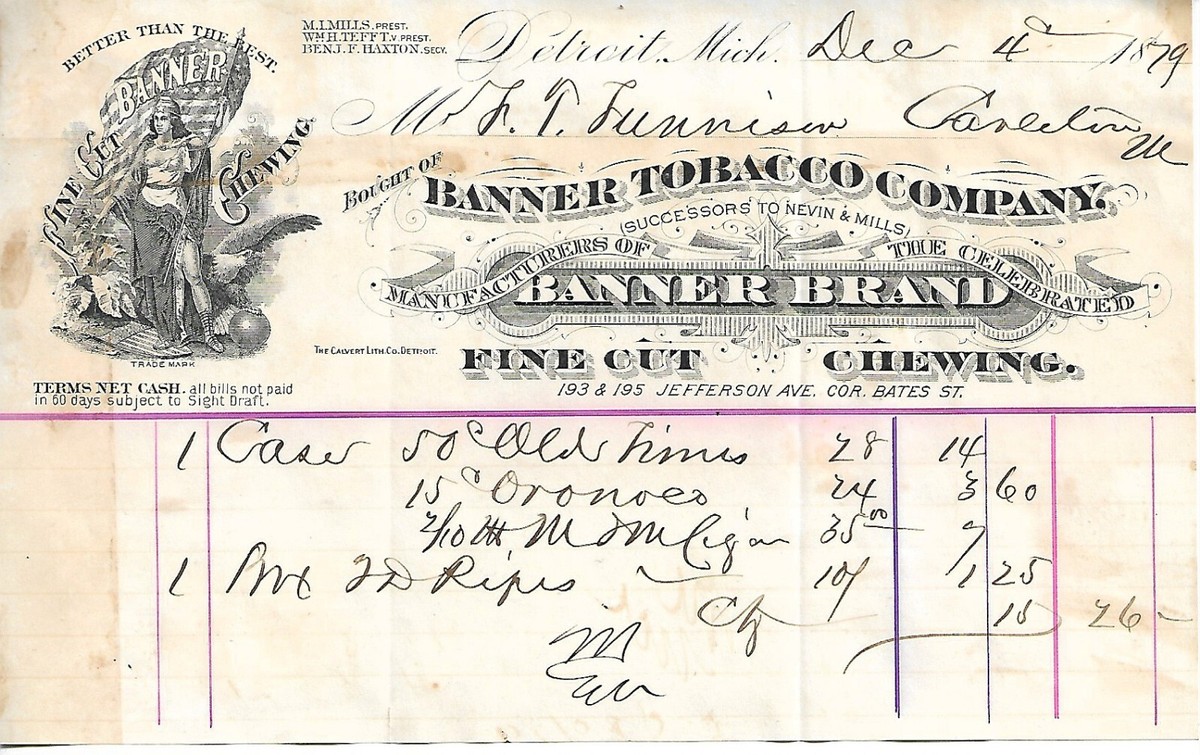 BETTER THAN THE BEST.
BANNER
FINE CUT CHEWING.
TRADE MARK
TERMS NET CASH. all bills not paid
in 60 days subject to Sight Draft.
M. I. MILLS. PREST.
WM. H. TEFFT. V. PREST.
BENJ. F. HAXTON. SECY.
Detroit, Mich. Dec 4 1879
Mr F. T.
BOUGHT OF
BANNER TOBACCO COMPANY.
(SUCCESSORS TO NEVIN & MILLS)
MANUFACTURERS OF THE CELEBRATED
BANNER BRAND
THE CALVERT LITH. CO. DETROIT.
FINE CUT CHEWING.
193 & 195 JEFFERSON AVE. COR. BATES ST.
1 Case 50 Old Times 28 14
15 Oronoco 24 3 60
2/10 M 35 00 7
1 Box Pipes 1 25
15 26 -